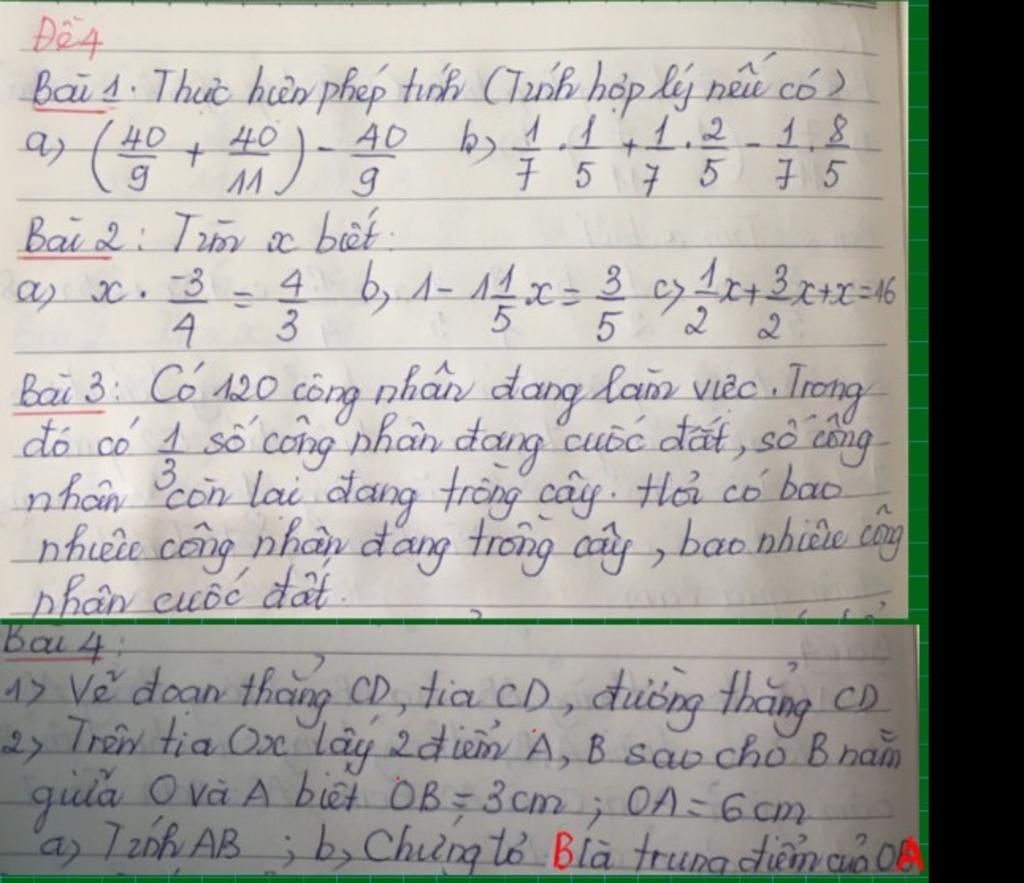 Đề 4
Bài 1. Thực hiện phép tính (Tính hợp lý nếu có)
a) (40/9 + 40/11) - 40/9 b) 1/7 . 1/5 + 1/7 . 2/5 - 1/7 . 8/5
Bài 2: Tìm x biết:
a) x . -3/4 = 4/3 b, 1 - 1 1/5 x = 3/5 c) 1/2 x + 3/2 x + x = 16
Bài 3: Có 120 công nhân đang làm việc. Trong
đó có 1/3 số công nhân đang cuốc đất, số công
nhân còn lại đang trồng cây. Hỏi có bao
nhiêu công nhân đang trồng cây, bao nhiêu công
nhân cuốc đất.
Bài 4:
1) Vẽ đoạn thẳng CD, tia CD, đường thẳng CD
2, Trên tia Ox lấy 2 điểm A, B sao cho B nằm
giữa O và A biết OB = 3cm ; OA = 6cm
a) Tính AB ; b, Chứng tỏ B là trung điểm của OA